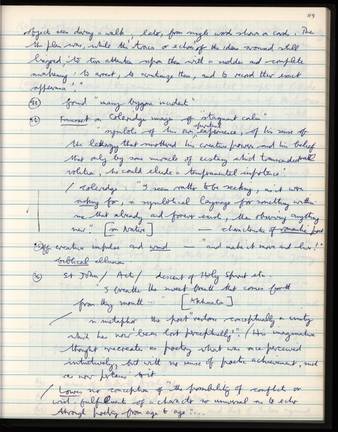 119
objects seen during a walk, later, from single words shown on cards. The
the plan was, while the 'traces or echoes of the ideas
lingered, to turn attention upon them with a sudden and complete
awakening, to arrest, to scrutinize them, and to record their exact
appearance."
found "many bygone incidents"
on Coleridge image of "stagnant calm"
"symbolic of his own experience, of his sense of
the lethargy that smothered his creative power and his belief
that only by some miracle of ecstasy which transcended all
volition, he could elude a temperamental impotence."
/ Coleridge: "I seem rather to be seeking, as it were
asking for, a symbolical language for something within
me that already and forever exists, than observing anything
new." [ ] — characteristic of romantic poet
creative impulse and wind — "and make it move and live!"
biblical allusion
St John / Acts / descent of Holy Spirit etc.
"I breathe the sweet breath that comes forth
from thy mouth..." [Akhnaten]
/ in metaphor the poet "restores conceptually a unity
which has now been lost perceptually". / His imaginative
thought re-creates as poetry what was once perceived
intuitively, but with no sense of poetic achievement, such
as now
/ Lowes no conception of "the possibility of conflict or
wish fulfilment of a character so universal as to echo
through poetry from age to age"...